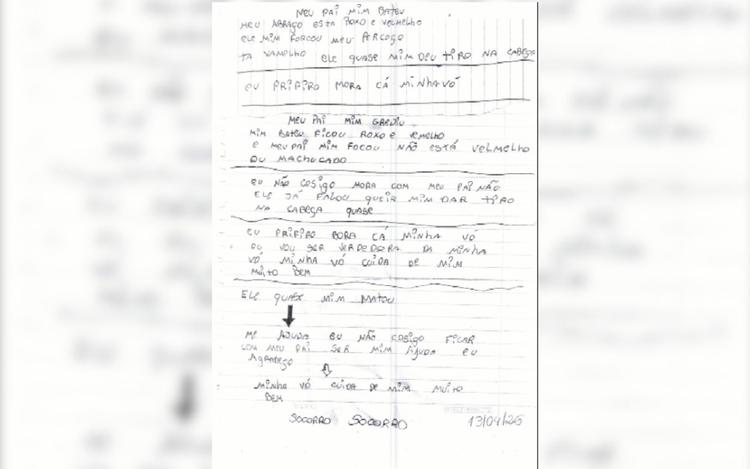 MEU PAI MIM BATEU
MEU ABRAÇO ESTA ROXO E VELMELHO
ELE MIM FORCOU MEU PERCOÇO
TA VAMELHO ELE QUASE MIM DEU TIRO NA CABEÇA
EU PRIFIRO MORA CÁ MINHA VÓ
MEU PAI MIM GREDIU
MIM BATEU FICOU ROXO E VEMELHO
E MEU PAI MIM FOCOU NÃO ESTÁ VELMELHO
OU MACHUCADO
EU NÃO COSIGO MORA COM MEU PAI NÃO
ELE JÁ FALOU QUEIR MIM DAR TIRO
NA CABEÇA QUASE
EU PRIFIRO BORA CÁ MINHA VÓ
EU VOU SER VERDEDEIRA DA MINHA
VÓ MINHA VÓ CUIDA DE MIM
MUITO BEM
ELE QUASE MIM MATOU
ME AJUDA EU NÃO COSIGO FICAR
COM MEU PAI SER MIM AJUDA EU
AGARDEÇO
MINHA VÓ CUIDA DE MIM MUITO
BEM
SOCORRO SOCORRO 13/04/26